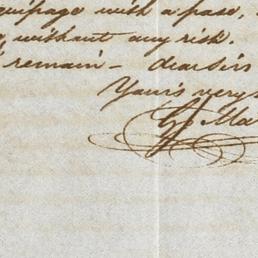 equipage with a pass,
without any risk.
remain – dear sirs
Yours very
G Ma